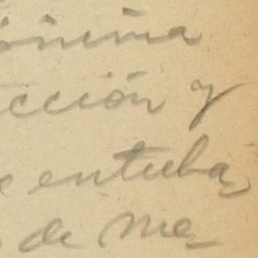 ónima
cción y
e entuba
de me-